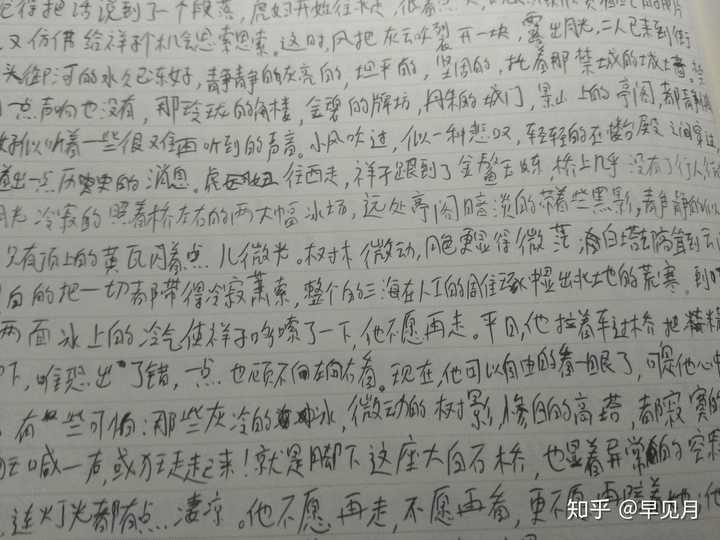 把话说到了一个段落,虎妞开始往
又仿佛给祥子个机会思索思索。这时,风把灰云吹裂开一块,露出月光,二人已来到街
头御河的水久已冻好,静静的灰亮的,坦平的,坚固的,托着那禁城的城墙禁
一点声响也没有,那玲珑的角楼,金碧的牌坊,丹朱的城门,景山上的亭阁,都静
好似听着一些很难再听到的声音。小风吹过,似一种悲叹,轻轻的在楼台殿之间穿过,
道出一点历史的消息。虎妞往西走,祥子跟到了金鳌玉蝀桥上几乎没有了行人,
月光冷寂的照着桥左右的两大幅冰场,远处亭阁暗淡的带着些黑影,静静的
只有顶上的黄瓦闪着点儿微光。树木微动,月色更显得微茫,白塔却高耸到云
白的把一切都带得冷寂萧索,整个的三海在人工的雕琢中显出北地的荒寒。到
两面冰上的冷气使祥子哆嗦了一下,他不愿再走。平日,他拉着车过桥,把精
下,唯恐出了错,一点也顾不得向左右看。现在,他可以自由的看一眼了,可是他心中
有些可怕:那些灰冷的冰,微动的树影,惨白的高塔,都寂寞的
狂喊一声,或狂走起来!就是脚下这座大白石桥,也显着异常的空
连灯光都有点凄凉。他不愿再走,不愿再看,更不愿再陪着她;他
知乎 @早见月